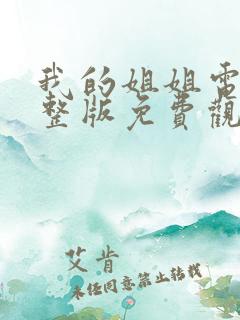 我的姐姐電
整版免費觀
艾肯
未经同意禁止转载